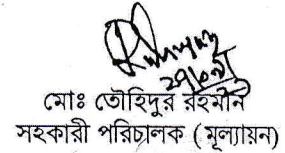 মোঃ তৌহিদুর রহমান
সহকারী পরিচালক ( মূল্যায়ন)